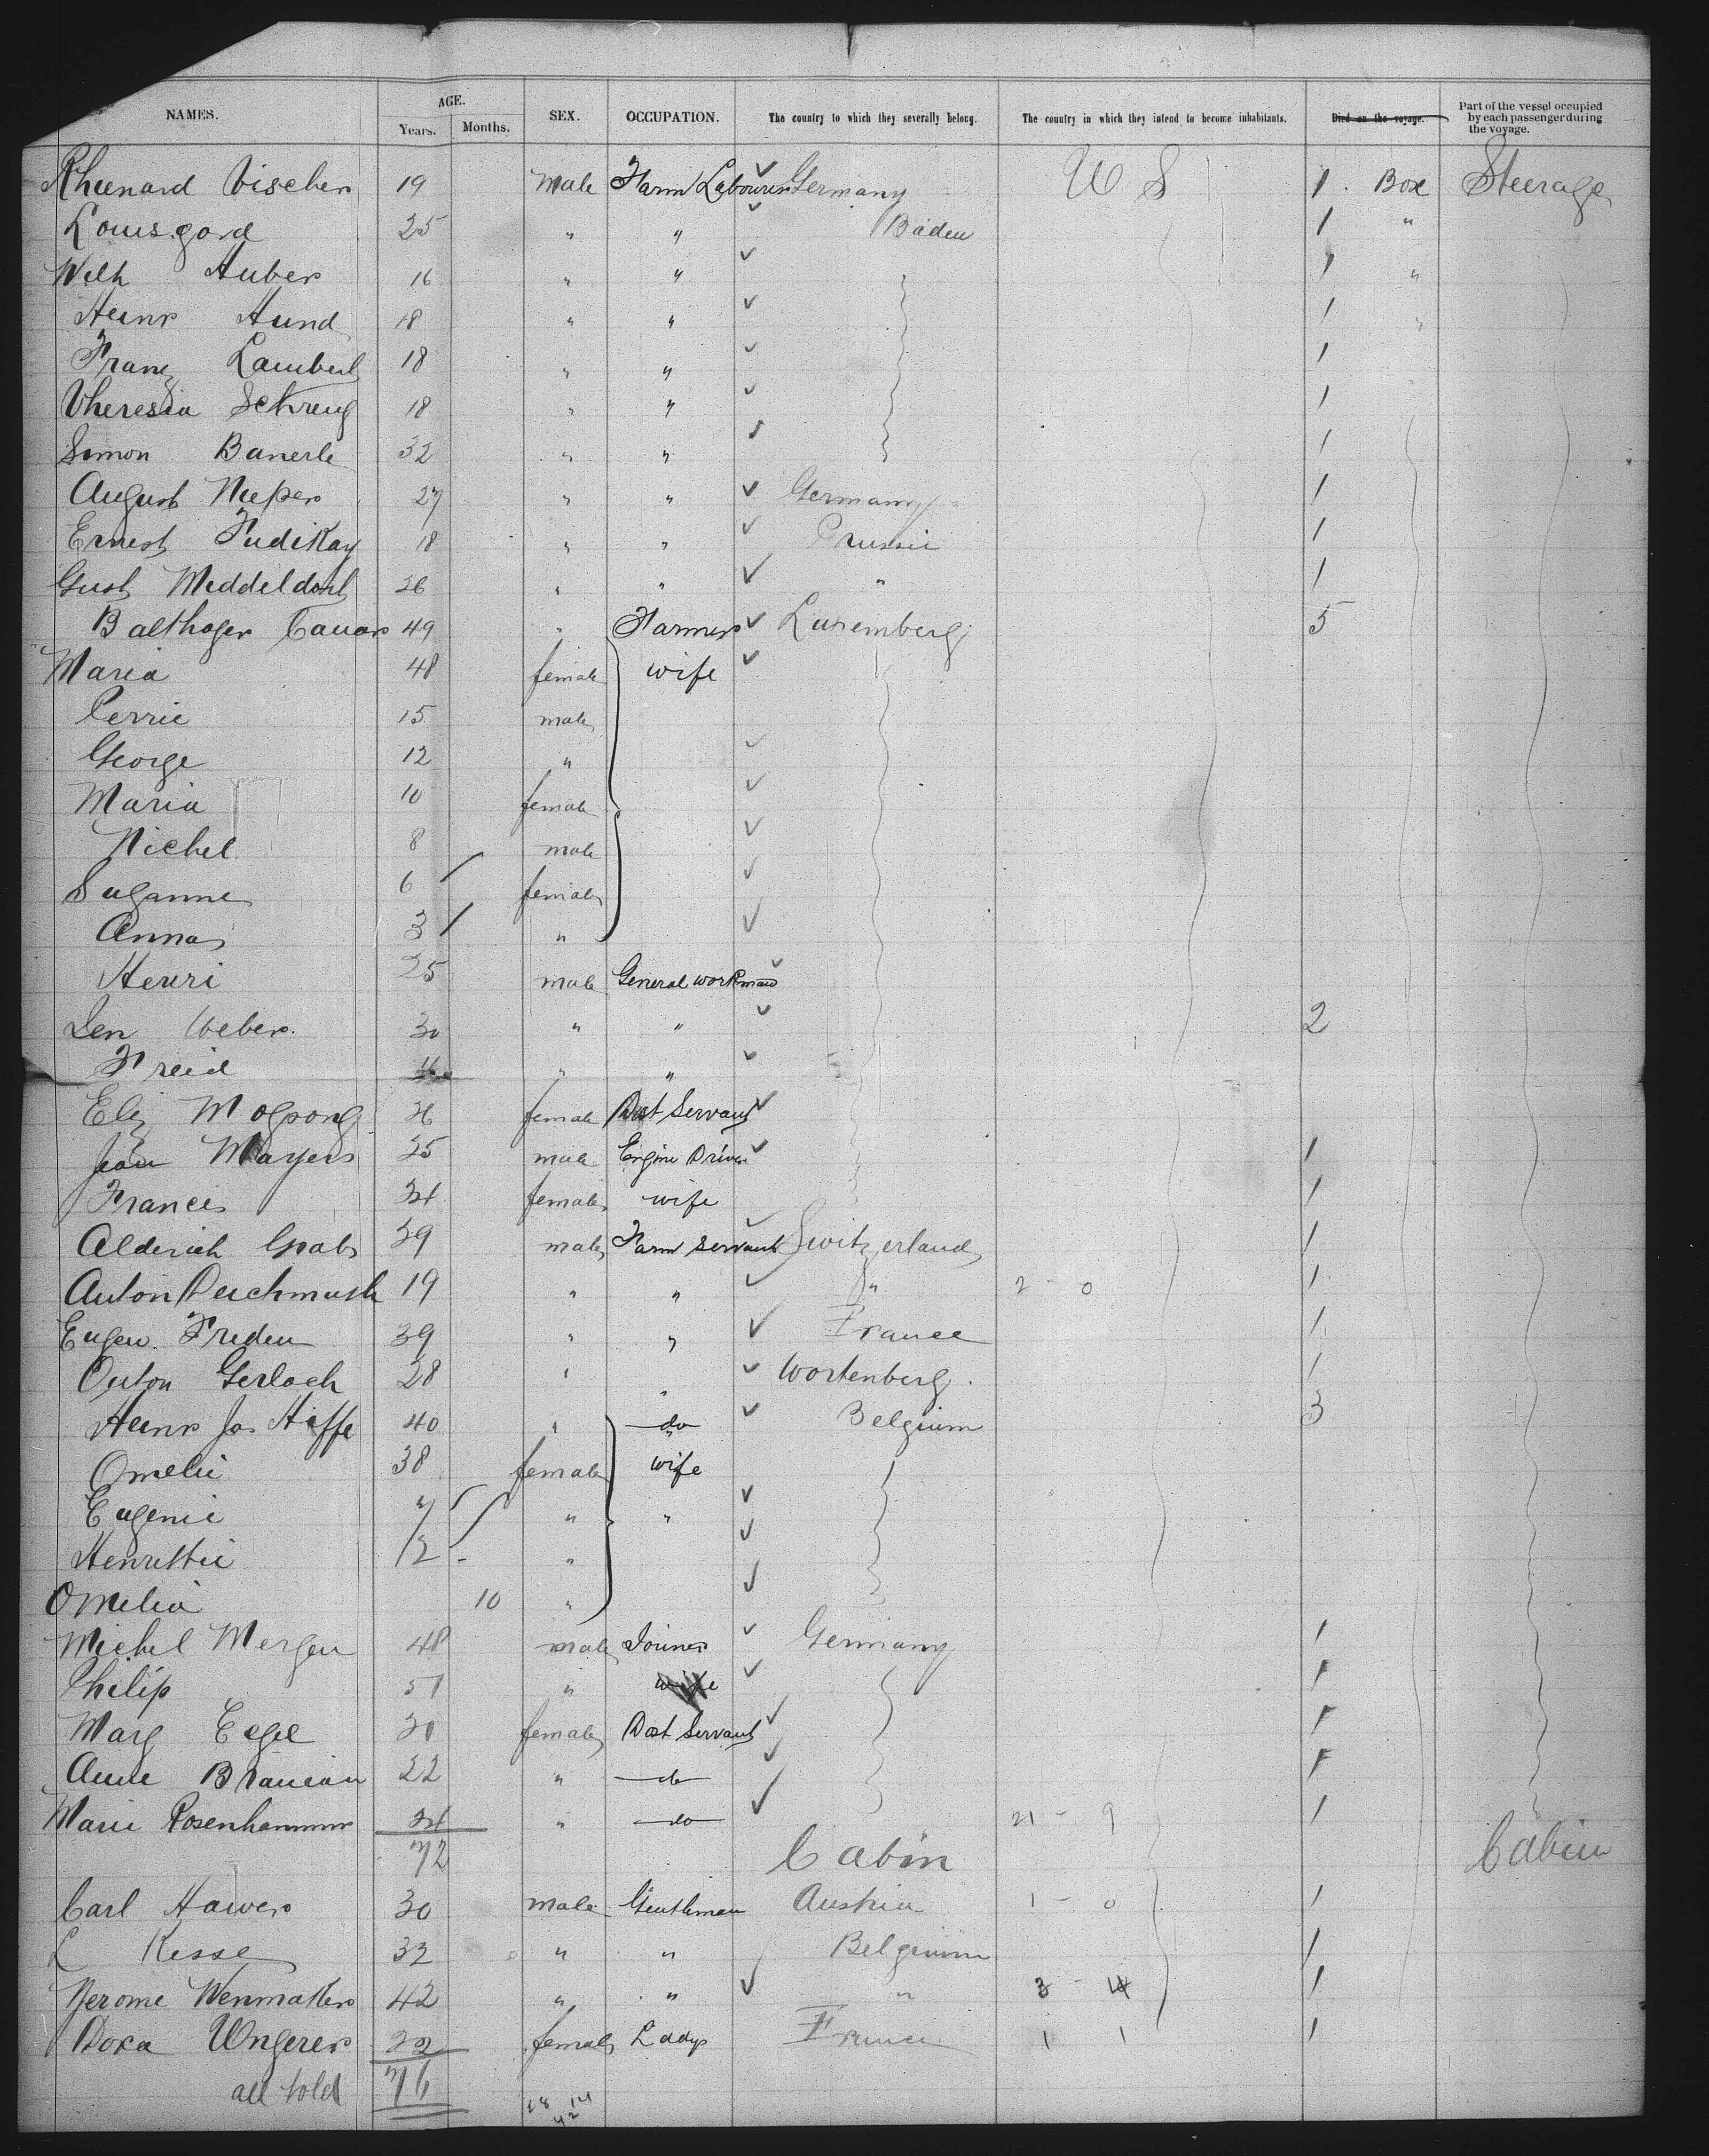 NAMES. AGE. Years. Months. SEX. OCCUPATION. The country to which they severally belong. The country in which they intend to become inhabitants. Died on the voyage. Part of the vessel occupied by each passenger during the voyage.
Rheenard Vischer 19 Male Farm Labourer Germany U S 1 Box Steerage
Louis gord 25 " " Baden 1 "
Wilh Huber 16 " " 1 "
Heinr Hund 18 " " 1 "
Franz Lambert 18 " " 1
Theresia Schreng 18 " " 1
Simon Banerle 32 " " 1
August Nieper 27 " " Germany 1
Ernest Fudikay 18 " " Prussie 1
Gust Middeldorf 26 " " " 1
Balthaser Cauar 49 " Farmer Luxemberg 5
Maria 48 female wife
Perrie 15 male
George 12 "
Maria 10 female
Nichel 8 male
Suzanne 6 female
Anna 3 "
Henri 25 male General workman
Jen Weber 30 " " 2
Freid " "
Eliz 26 female Dost Servant
Jean Mayers 25 male Engine Driver 1
Francis 24 female wife 1
Alderich 39 male Farm servant Switzerland 1
Anton Deichmush 19 " " " 2 - 0 1
Eugen Freden 39 " " France 1
Anton Gerlach 28 " " Wortenberg 1
Heinr Jos Hiffe 40 " do Belgium 3
Omelie 38 female wife
Eugenie 7 " "
Henrettie 12 "
Omelia 10 "
Michel Mergen 48 male Joiner Germany 1
Philip 51 " wife 1
Marg Eegel 30 female Dost Servant 1
Anne Brancan 22 " do 1
Marie Rosenhammer 24 " do 21 - 9 1
72 Cabin Cabin
Carl Hawer 30 male Gentleman Austria 1 - 0 1
L Kesse 32 " " Belgium 1
Jerome Wenmaker 42 " " " 3 - 4 1
Dora Ungerer 22 female Lady France 1 1 1
all told 76
28 14
42